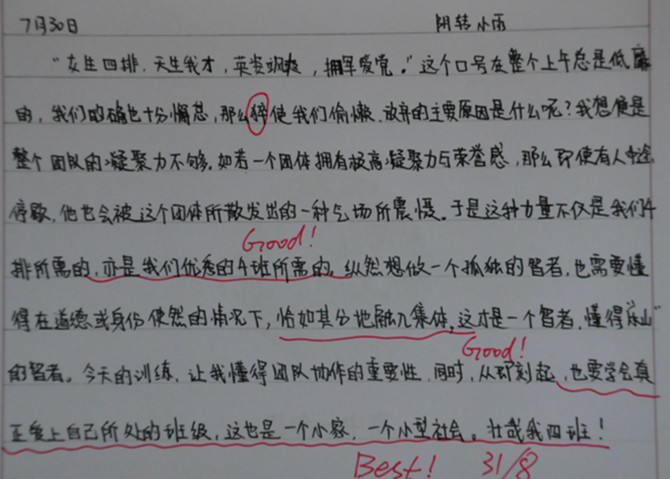 7月30日 阴转小雨
“女生四排,天生我才,英姿飒爽,拥军爱党。”这个口号在整个上午总是低靡
的,我们的确也十分懈怠,那么 使我们偷懒、放弃的主要原因是什么呢?我想便是
整个团队的凝聚力不够。如若一个团体拥有极高凝聚力与荣誉感,那么即使有人中途
停歇,他也会被这个团体所散发出的一种气场所震慑。于是这种力量不仅是我们4
Good!
排所需的,亦是我们优秀的4班所需的。纵然想做一个孤独的智者,也需要懂
得在道德或身份使然的情况下,恰如其分地融入集体,这才是一个智者,懂得“出山”
Good!
的智者。今天的训练,让我懂得团队协作的重要性,同时,从即刻起,也要学会真
正爱上自己所处的班级,这也是一个小家,一个小型社会。壮哉我四班!
Best! 31/8